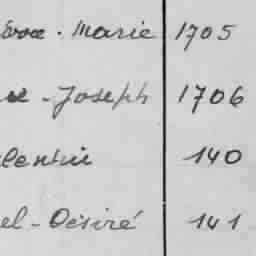 Marie 1705
Joseph 1706
lentin 140
el-Désiré 141